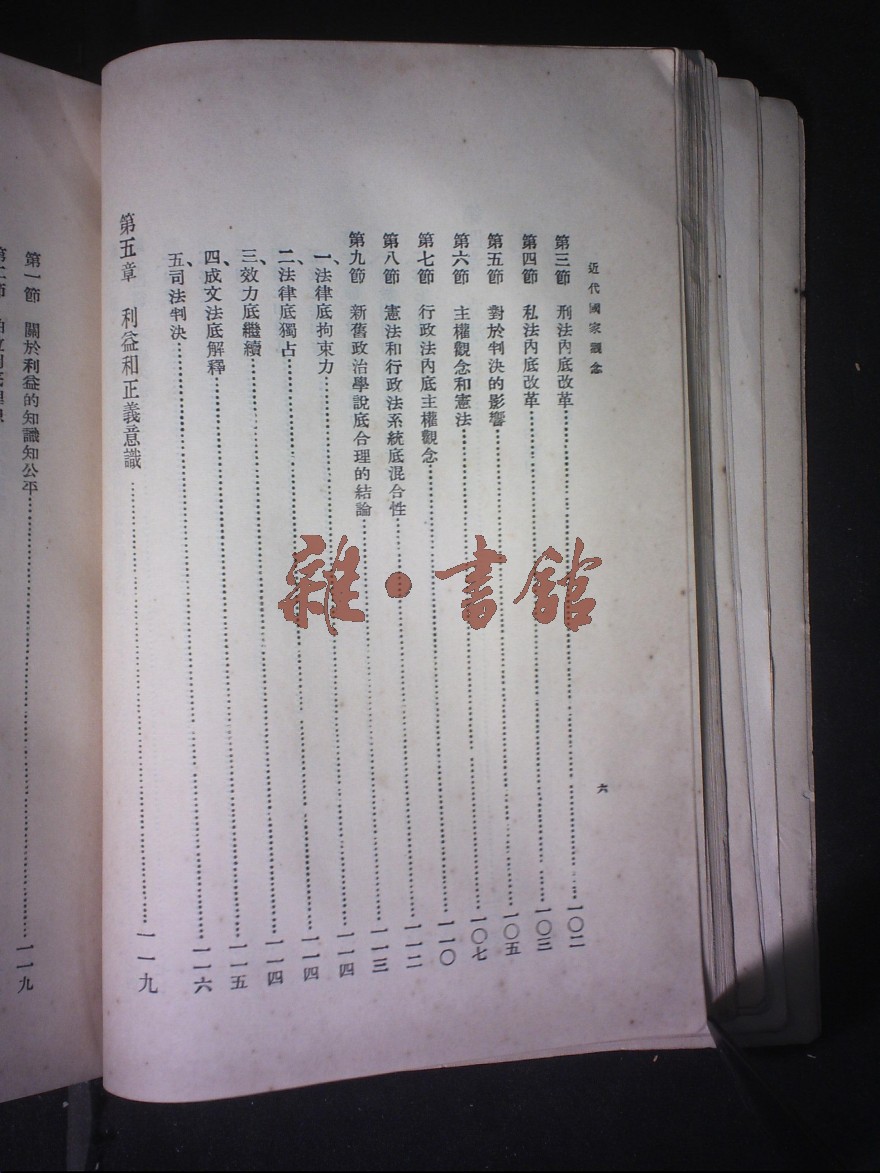 近代國家觀念
六
第三節 刑法內底改革……一〇二
第四節 私法內底改革……一〇三
第五節 對於判決的影響……一〇五
第六節 主權觀念和憲法……一〇七
第七節 行政法內底主權觀念……一一〇
第八節 憲法和行政法系統底混合性……一一二
第九節 新舊政治學說底合理的結論……一一三
一、法律底拘束力……一一四
二、法律底獨占……一一四
三、效力底繼續……一一四
四、成文法底解釋……一一五
五、司法判決……一一六
第五章 利益和正義意識……一一九
第一節 關於利益的知識知公平……一一九
雜·書館